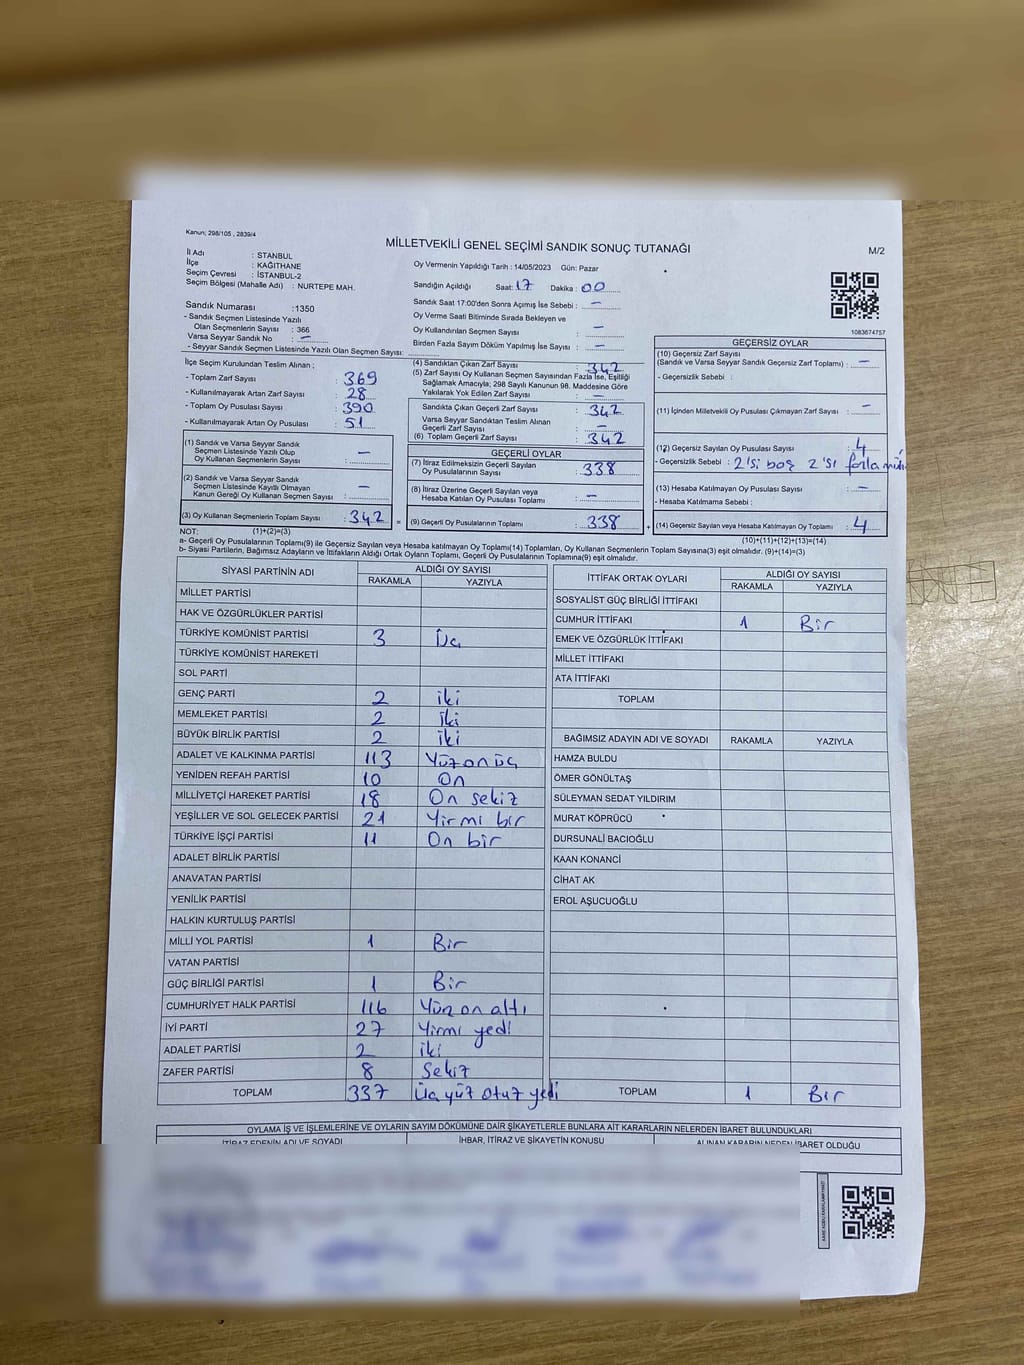 Kanun; 298/105 , 2839/4
MİLLETVEKİLİ GENEL SEÇİMİ SANDIK SONUÇ TUTANAĞI
M/2
İl Adı : STANBUL
İlçe : KAĞITHANE
Seçim Çevresi : İSTANBUL-2
Seçim Bölgesi (Mahalle Adı) : NURTEPE MAH.
Oy Vermenin Yapıldığı Tarih : 14/05/2023 Gün: Pazar
Sandığın Açıldığı Saat: 17 Dakika : 00
Sandık Saat 17:00'den Sonra Açımış İse Sebebi : —
Oy Verme Saati Bitiminde Sırada Bekleyen ve
Oy Kullandırılan Seçmen Sayısı : —
Birden Fazla Sayım Döküm Yapılmış İse Sayısı : —
1083674757
Sandık Numarası :1350
- Sandık Seçmen Listesinde Yazılı
Olan Seçmenlerin Sayısı : 366
Varsa Seyyar Sandık No : —
- Seyyar Sandık Seçmen Listesinde Yazılı Olan Seçmen Sayısı:
İlçe Seçim Kurulundan Teslim Alınan ;
- Toplam Zarf Sayısı : 369
- Kullanılmayarak Artan Zarf Sayısı : 28
- Toplam Oy Pusulası Sayısı : 390
- Kullanılmayarak Artan Oy Pusulası : 51
(1) Sandık ve Varsa Seyyar Sandık
Seçmen Listesinde Yazılı Olup
Oy Kullanan Seçmenlerin Sayısı : —
(2) Sandık ve Varsa Seyyar Sandık
Seçmen Listesinde Kayıtlı Olmayan
Kanun Gereği Oy Kullanan Seçmen Sayısı : —
(3) Oy Kullanan Seçmenlerin Toplam Sayısı : 342
(4) Sandıktan Çıkan Zarf Sayısı : 342
(5) Zarf Sayısı Oy Kullanan Seçmen Sayısından Fazla İse, Eşitliği
Sağlamak Amacıyla; 298 Sayılı Kanunun 98. Maddesine Göre
Yakılarak Yok Edilen Zarf Sayısı : —
Sandıkta Çıkan Geçerli Zarf Sayısı : 342
Varsa Seyyar Sandıktan Teslim Alınan
Geçerli Zarf Sayısı : —
(6) Toplam Geçerli Zarf Sayısı : 342
GEÇERLİ OYLAR
(7) İtiraz Edilmeksizin Geçerli Sayılan
Oy Pusulalarının Sayısı : 338
(8) İtiraz Üzerine Geçerli Sayılan veya
Hesaba Katılan Oy Pusulası Toplamı : —
= (9) Geçerli Oy Pusulalarının Toplamı : 338 +
GEÇERSİZ OYLAR
(10) Geçersiz Zarf Sayısı
(Sandık ve Varsa Seyyar Sandık Geçersiz Zarf Toplamı) : —
- Geçersizlik Sebebi :
(11) İçinden Milletvekili Oy Pusulası Çıkmayan Zarf Sayısı : —
(12) Geçersiz Sayılan Oy Pusulası Sayısı : 4
- Geçersizlik Sebebi : 2'si boş 2'si fazla
(13) Hesaba Katılmayan Oy Pusulası Sayısı : —
- Hesaba Katılmama Sebebi :
(14) Geçersiz Sayılan veya Hesaba Katılmayan Oy Toplamı : 4
NOT: (1)+(2)=(3) (10)+(11)+(12)+(13)=(14)
a- Geçerli Oy Pusulalarının Toplamı(9) ile Geçersiz Sayılan veya Hesaba katılmayan Oy Toplamı(14) Toplamları, Oy Kullanan Seçmenlerin Toplam Sayısına(3) eşit olmalıdır. (9)+(14)=(3)
b- Siyasi Partilerin, Bağımsız Adayların ve İttifakların Aldığı Ortak Oyların Toplamı, Geçerli Oy Pusulalarının Toplamına(9) eşit olmalıdır.
SİYASİ PARTİNİN ADI ALDIĞI OY SAYISI
RAKAMLA YAZIYLA
MİLLET PARTİSİ
HAK VE ÖZGÜRLÜKLER PARTİSİ
TÜRKİYE KOMÜNİST PARTİSİ 3 Üç
TÜRKİYE KOMÜNİST HAREKETİ
SOL PARTİ
GENÇ PARTİ 2 iki
MEMLEKET PARTİSİ 2 iki
BÜYÜK BİRLİK PARTİSİ 2 iki
ADALET VE KALKINMA PARTİSİ 113 Yüzonüç
YENİDEN REFAH PARTİSİ 10 On
MİLLİYETÇİ HAREKET PARTİSİ 18 On sekiz
YEŞİLLER VE SOL GELECEK PARTİSİ 21 Yirmi bir
TÜRKİYE İŞÇİ PARTİSİ 11 On bir
ADALET BİRLİK PARTİSİ
ANAVATAN PARTİSİ
YENİLİK PARTİSİ
HALKIN KURTULUŞ PARTİSİ
MİLLİ YOL PARTİSİ 1 Bir
VATAN PARTİSİ
GÜÇ BİRLİĞİ PARTİSİ 1 Bir
CUMHURİYET HALK PARTİSİ 116 Yüz on altı
İYİ PARTİ 27 Yirmi yedi
ADALET PARTİSİ 2 iki
ZAFER PARTİSİ 8 Sekiz
TOPLAM 337 Üç yüz otuz yedi
İTTİFAK ORTAK OYLARI ALDIĞI OY SAYISI
RAKAMLA YAZIYLA
SOSYALİST GÜÇ BİRLİĞİ İTTİFAKI
CUMHUR İTTİFAKI 1 Bir
EMEK VE ÖZGÜRLÜK İTTİFAKI
MİLLET İTTİFAKI
ATA İTTİFAKI
TOPLAM
BAĞIMSIZ ADAYIN ADI VE SOYADI RAKAMLA YAZIYLA
HAMZA BULDU
ÖMER GÖNÜLTAŞ
SÜLEYMAN SEDAT YILDIRIM
MURAT KÖPRÜCÜ
DURSUNALİ BACIOĞLU
KAAN KONANCİ
CİHAT AK
EROL AŞUCUOĞLU
TOPLAM 1 Bir
OYLAMA İŞ VE İŞLEMLERİNE VE OYLARIN SAYIM DÖKÜMÜNE DAİR ŞİKAYETLERLE BUNLARA AİT KARARLARIN NELERDEN İBARET BULUNDUKLARI
İTİRAZ EDENİN ADI VE SOYADI İHBAR, İTİRAZ VE ŞİKAYETİN KONUSU ALINAN KARARIN NEDEN İBARET OLDUĞU